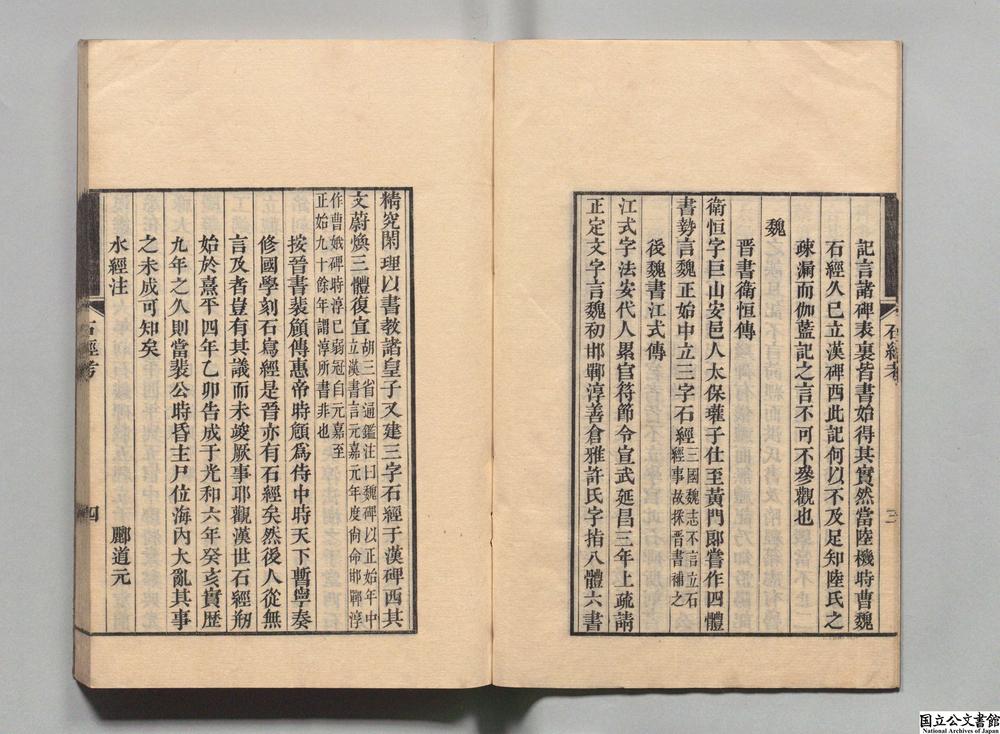 記言諸碑表裏皆書始得其實然當陸機時曹魏
石經久已立漢碑西此記何以不及足知陸氏之
疎漏而伽藍記之言不可不參觀也
魏
晉書衛恒傳
衛恒字巨山安邑人太保瓘子仕至黃門郞嘗作四體
書勢言魏正始中立三字石經三國魏志不言立石
經事故採晉書補之
後魏書江式傳
江式字法安代人累官符節令宣武延昌三年上疏請
正定文字言魏初邯鄲淳善倉雅許氏字指八體六書
石經考
三
精究閑理以書教諸皇子又建三字石經于漢碑西其
文蔚煥三體復宣胡三省通鑑注曰魏碑以正始年中
立漢書言元嘉元年度尙命邯鄲淳
作曹娥碑時淳已弱冠自元嘉至
正始九十餘年謂淳所書非也
按晉書裴頠傳惠帝時頠爲侍中時天下暫寧奏
修國學刻石寫經是晉亦有石經矣然後人從無
言及者豈有其議而未竣厥事耶觀漢世石經刱
始於熹平四年乙卯告成于光和六年癸亥實歷
九年之久則當裴公時昏主尸位海內大亂其事
之未成可知矣
水經注 酈道元
石經考
四
国立公文書館
National Archives of Japan